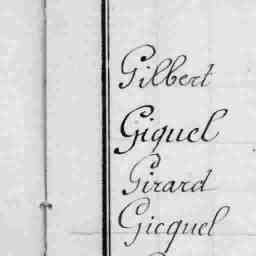 Gilbert
Giquel
Girard
Gicquel